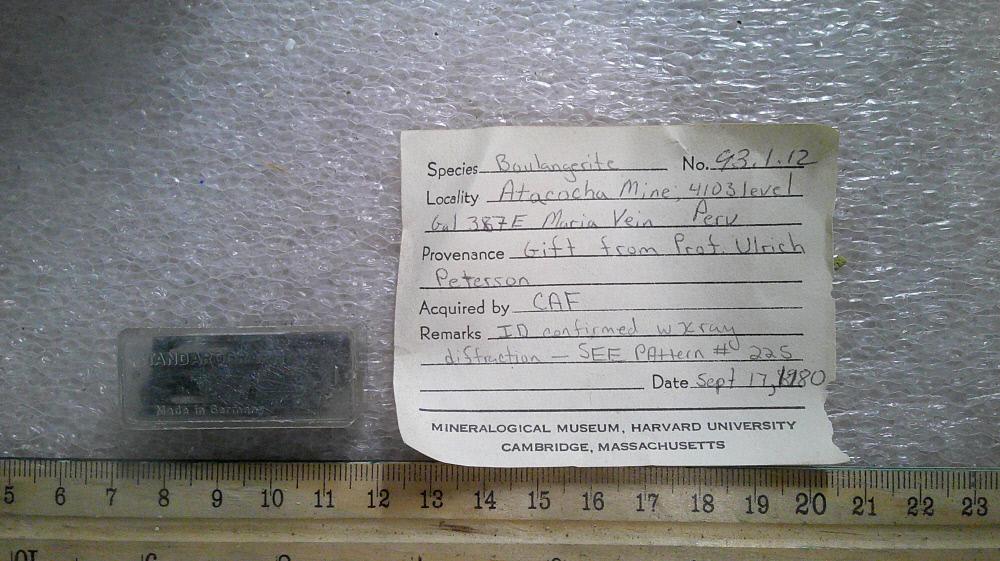 Species Boulangerite No. 93.1.12
Locality Atacocha Mine; 4103 level
Gal 387E Maria Vein Peru
Provenance Gift from Prof. Ulrich
Peterson
Acquired by CAF
Remarks ID confirmed w xray
diffraction — SEE PAttern # 225
Date Sept 17, 1980
MINERALOGICAL MUSEUM, HARVARD UNIVERSITY
CAMBRIDGE, MASSACHUSETTS
Made in Germany
5 6 7 8 9 10 11 12 13 14 15 16 17 18 19 20 21 22 23